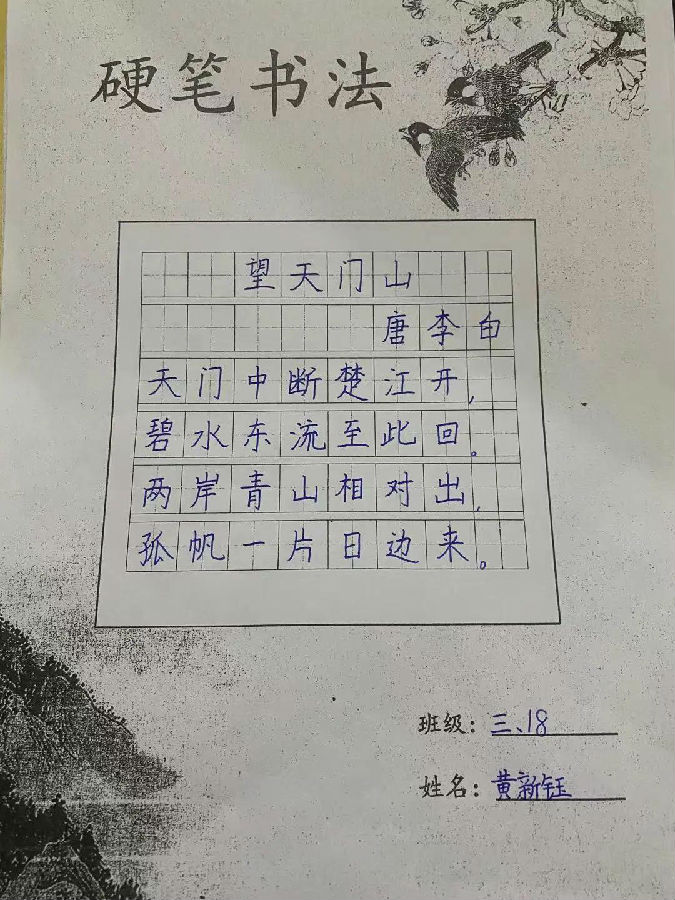 硬笔书法
望天门山
唐李白
天门中断楚江开,
碧水东流至此回。
两岸青山相对出,
孤帆一片日边来。
班级：三、18
姓名：黄新钰